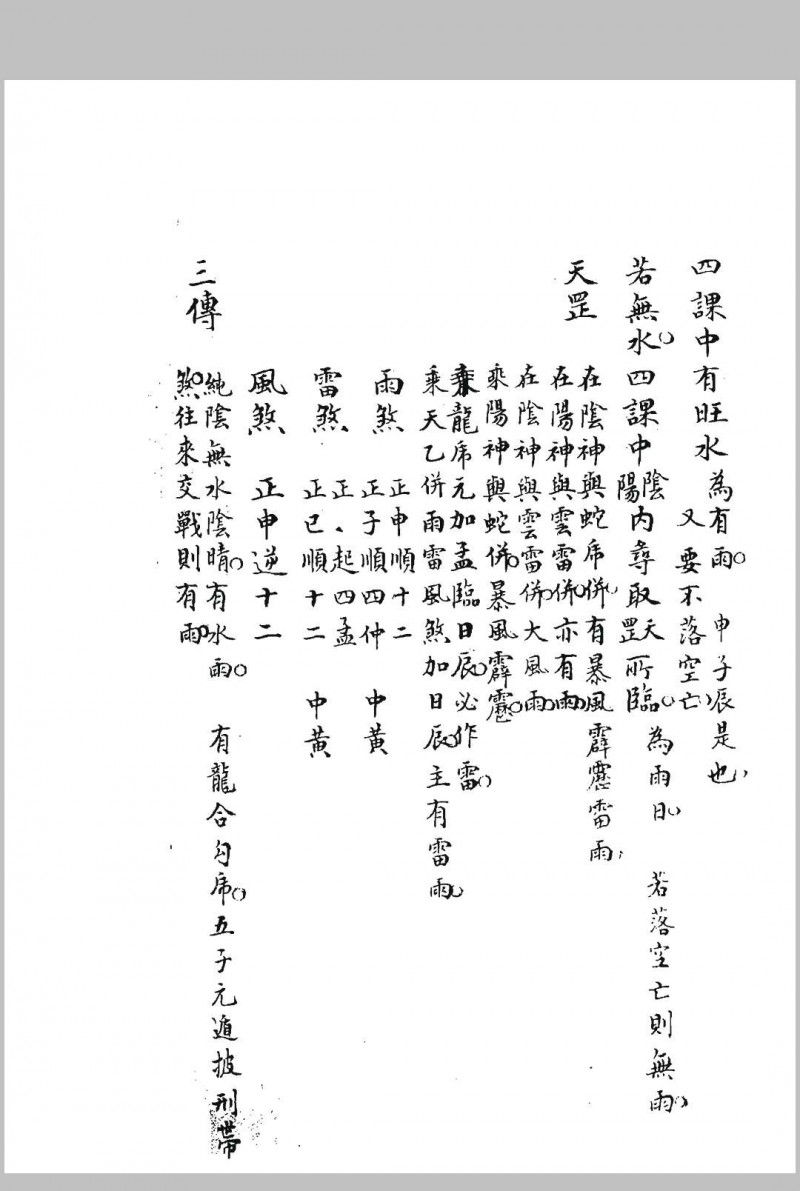 四課中有旺水為有雨 申子辰是也
又要不落空亡
若無水四課中陰陽內尋取天罡所臨為雨日 若落空亡則無雨
天罡
在陰神與蛇虎併有暴風霹靂雷雨
在陽神與雲雷併亦有雨
在陰神與雲雷併大風雨
乘陽神與蛇併暴風霹靂
乘龍虎元加孟臨日辰必作雷
乘天乙併雨雷風煞加日辰主有雷雨
雨煞
正申順十二
正子順四仲 中黃
雷煞
正、起四孟
正巳順十二 中黃
風煞 正申逆十二
三傳
純陰無水陰晴有水雨 有龍合勾虎五子元遁披刑帶
煞往來交戰則有雨